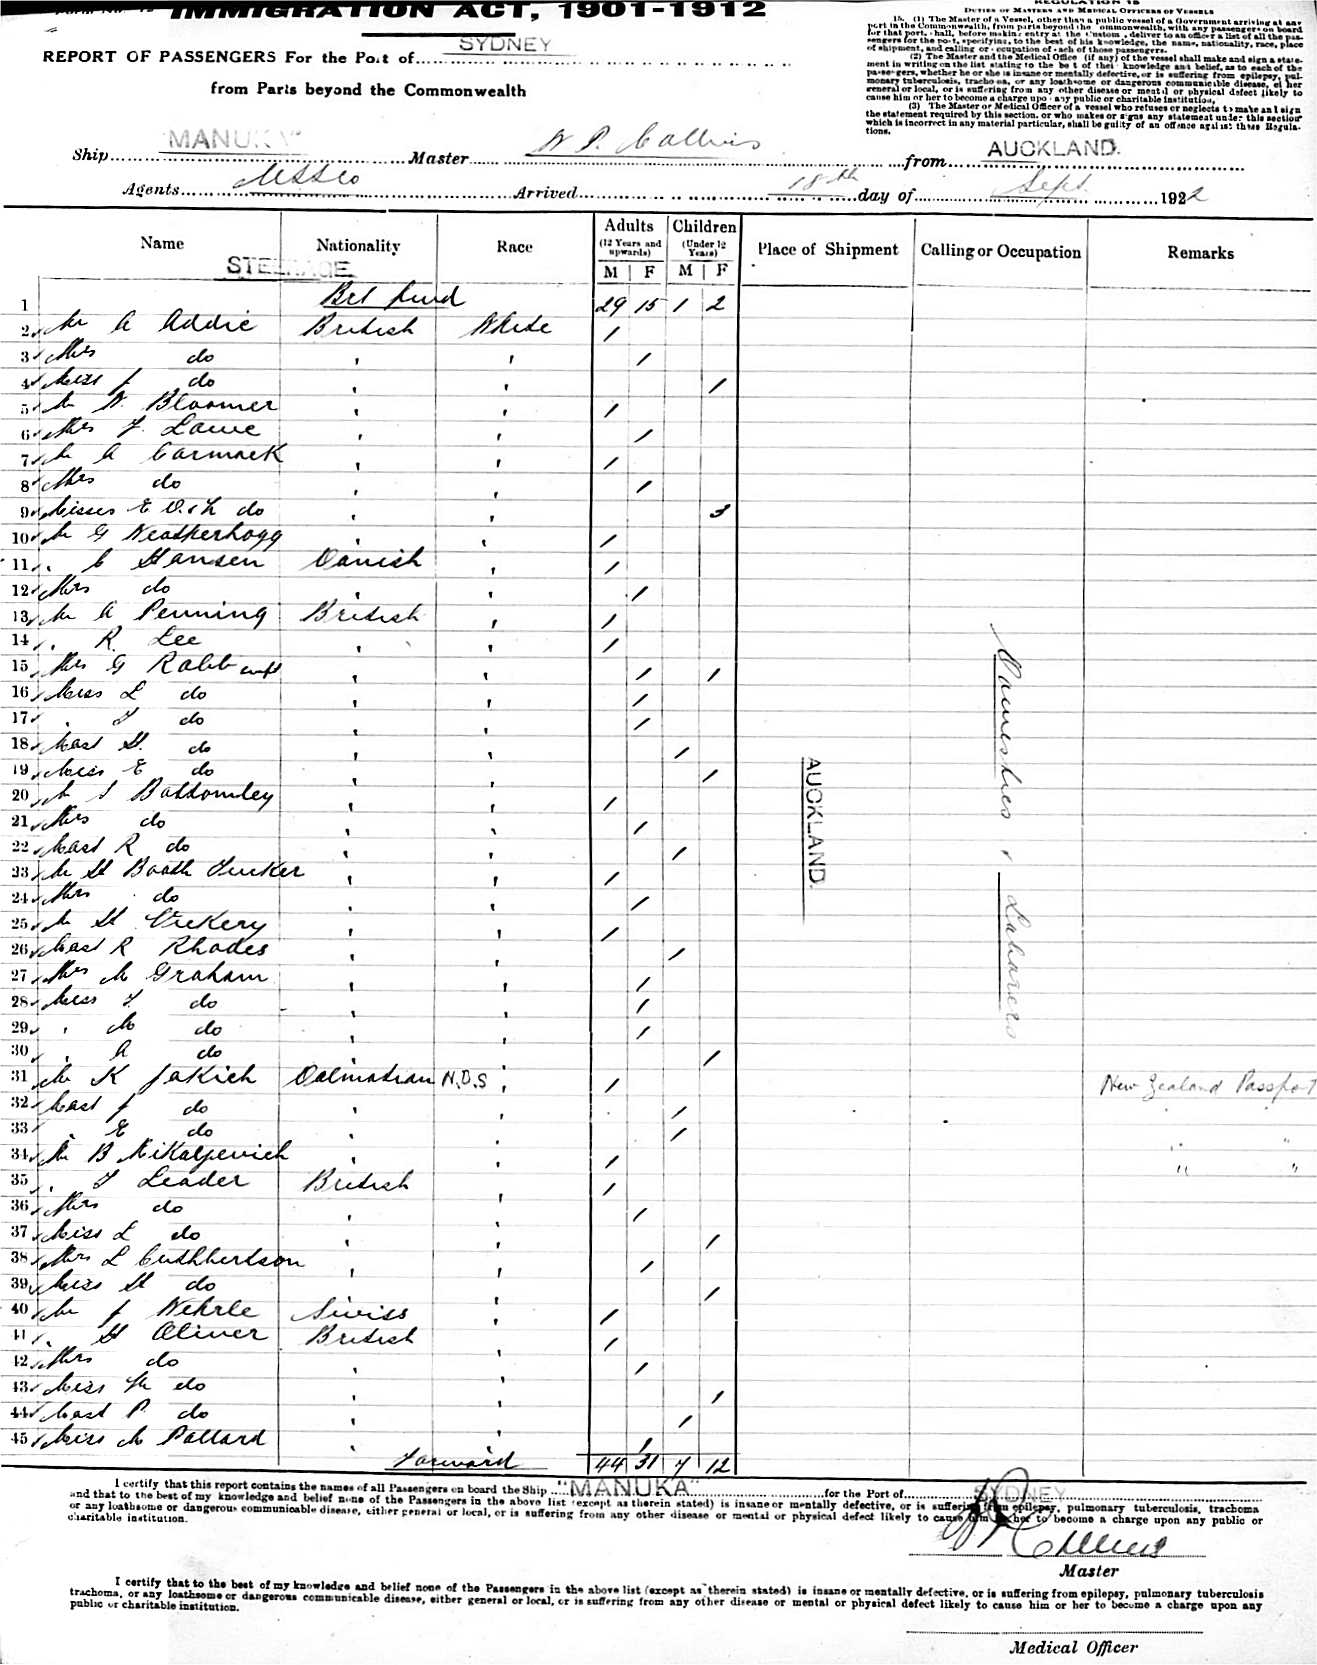 IMMIGRATION ACT, 1901-1912
REPORT OF PASSENGERS For the Port of SYDNEY
from Parts beyond the Commonwealth
REGULATION 15
DUTIES OF MASTERS AND MEDICAL OFFICERS OF VESSELS
15. (1) The Master of a Vessel, other than a public vessel of a Government arriving at any
port in the Commonwealth, from parts beyond the Commonwealth, with any passengers on board
for that port, shall, before making entry at the Customs, deliver to an officer a list of all the pas-
sengers for the port, specifying, to the best of his knowledge, the name, nationality, race, place
of shipment, and calling or occupation of each of those passengers.
(2) The Master and the Medical Office (if any) of the vessel shall make and sign a state-
ment in writing on the list stating to the best of their knowledge and belief, as to each of the
passengers, whether he or she is insane or mentally defective, or is suffering from epilepsy, pul-
monary tuberculosis, trachoma, or any loathsome or dangerous communicable disease, either
general or local, or is suffering from any other disease or mental or physical defect likely to
cause him or her to become a charge upon any public or charitable institution,
(3) The Master or Medical Officer of a vessel who refuses or neglects to make and sign
the statement required by this section, or who makes or signs any statement under this section
which is incorrect in any material particular, shall be guilty of an offence against these Regula-
tions.
Ship "MANUKA" Master W P. Collins from AUCKLAND.
Agents USSCo Arrived 18th day of Sept. 1922
Name Nationality Race Adults Children Place of Shipment Calling or Occupation Remarks
(12 Years and upwards) (Under 12 Years)
M F M F
STEERAGE
1 Bt Fwd 29 15 1 2
2 Mr A Addie British White 1
3 Mrs do " " 1
4 Miss J do " " 1
5 Mr W. Bloomer " " 1
6 Mrs F. Lowe " " 1
7 Mr A Carmack " " 1
8 Mrs do " " 1
9 Misses E do " " 3
10 Mr G Weatherhogg " " 1
11 " C Hansen Danish " 1
12 Mrs do " " 1
13 Mr A Penning British " 1
14 " R. Lee " " 1
15 Mrs G Robb & inft " " 1 1
16 Miss L do " " 1
17 " I do " " 1
18 Mast H. do " " 1
19 Miss E do " " 1
20 Mr I Bottomley " " 1
21 Mrs do " " 1
22 Mast R do " " 1
23 Mr H Booth Tucker " " 1
24 Mrs do " " 1
25 Mr H Vickery " " 1
26 Mast R Rhodes " " 1
27 Mrs M Graham " " 1
28 Miss I do " " 1
29 " M do " " 1
30 " A do " " 1
31 Mr K Jakich Dalmatian N.D.S " 1 New Zealand Passport
32 Mast J do " " 1 " "
33 " E do " " 1 " "
34 Mr B Mikaljevich " " 1 " "
35 " T Leader British " 1
36 Mrs do " " 1
37 Miss L do " " 1
38 Mrs L Cuthbertson " " 1
39 Miss H do " " 1
40 Mr J Wehrle Swiss " 1
41 " H Oliver British " 1
42 Mrs do " " 1
43 Miss M do " " 1
44 Mast P. do " " 1
45 Miss M Pollard " " 1
AUCKLAND.
Domestics & Labourers
Forward 44 31 7 12
I certify that this report contains the names of all Passengers on board the Ship "MANUKA" for the Port of SYDNEY
and that to the best of my knowledge and belief none of the Passengers in the above list (except as therein stated) is insane or mentally defective, or is suffering from epilepsy, pulmonary tuberculosis, trachoma
or any loathsome or dangerous communicable disease, either general or local, or is suffering from any other disease or mental or physical defect likely to cause him or her to become a charge upon any public or
charitable institution.
W P Collins
Master
I certify that to the best of my knowledge and belief none of the Passengers in the above list (except as therein stated) is insane or mentally defective, or is suffering from epilepsy, pulmonary tuberculosis
trachoma, or any loathsome or dangerous communicable disease, either general or local, or is suffering from any other disease or mental or physical defect likely to cause him or her to become a charge upon any
public or charitable institution.
Medical Officer